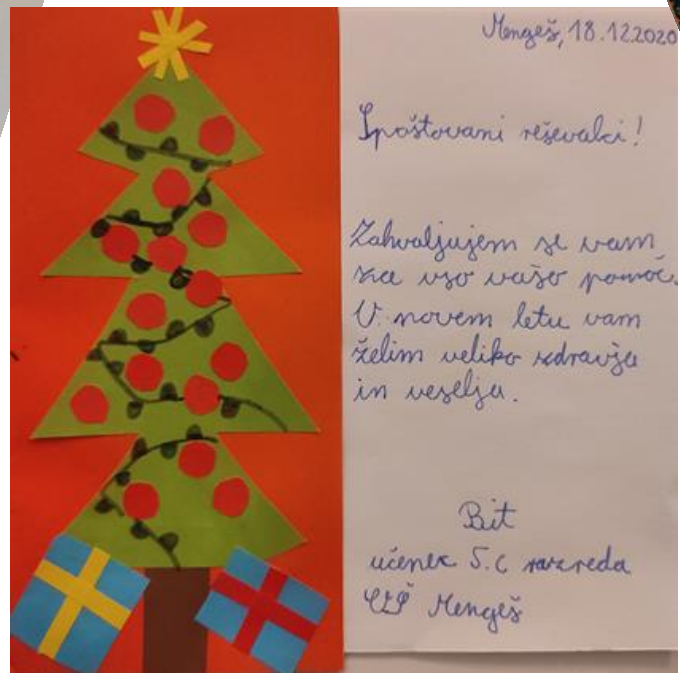 Mengeš, 18.12.2020
Spoštovani reševalci!
Zahvaljujem se vam
za vso vašo pomoč.
V novem letu vam
želim veliko zdravja
in veselja.
Bit
učenec 5.c razreda
Mengeš